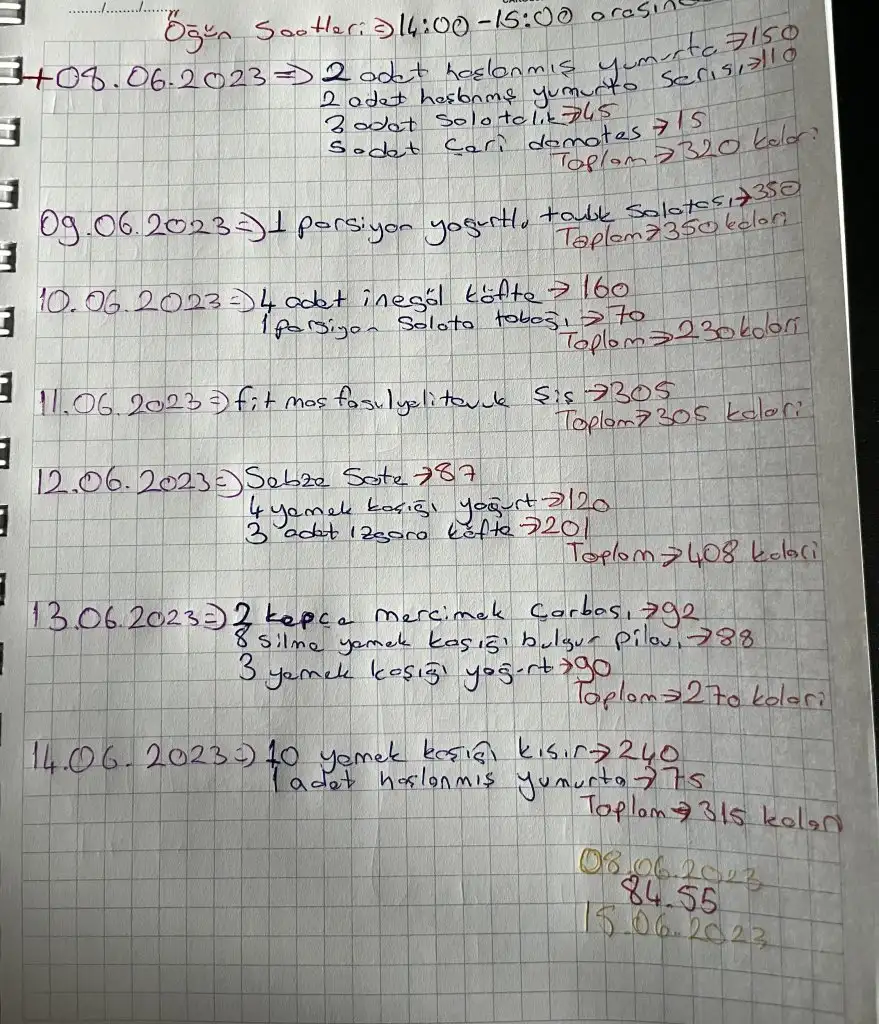 Öğün Saatleri ⇒ 14:00 - 15:00 arasın
+08.06.2023 ⇒ 2 adet haşlanmış yumurta → 150
2 adet haşlanmış yumurta sarısı → 110
3 adet salatalık → 45
5 adet çeri domates → 15
Toplam → 320 kalori
09.06.2023 ⇒ 1 porsiyon yoğurtlu tavuk salatası → 350
Toplam → 350 kalori
10.06.2023 ⇒ 4 adet inegöl köfte → 160
1 porsiyon salata tabağı → 70
Toplam → 230 kalori
11.06.2023 ⇒ fit maş fasulyeli tavuk şiş → 305
Toplam → 305 kalori
12.06.2023 ⇒ Sebze Sote → 87
4 yemek kaşığı yoğurt → 120
3 adet ızgara köfte → 201
Toplam → 408 kalori
13.06.2023 ⇒ 2 kepçe mercimek çorbası → 92
8 silme yemek kaşığı bulgur pilavı → 88
3 yemek kaşığı yoğurt → 90
Toplam → 270 kalori
14.06.2023 ⇒ 10 yemek kaşığı kısır → 240
1 adet haşlanmış yumurta → 75
Toplam → 315 kalori
08.06.2023
84.55
15.06.2023